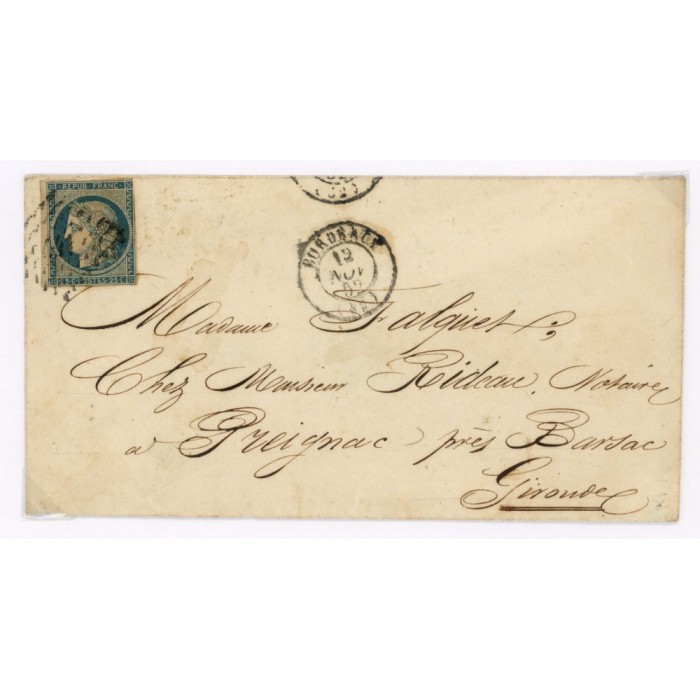 REPUB. FRANC.
25 C POSTES 25 C
52
BORDEAUX
12
NOV
52
(32)
Madame Falguet,
Chez Monsieur Rideau, Notaire
a Preignac près Barsac
Gironde